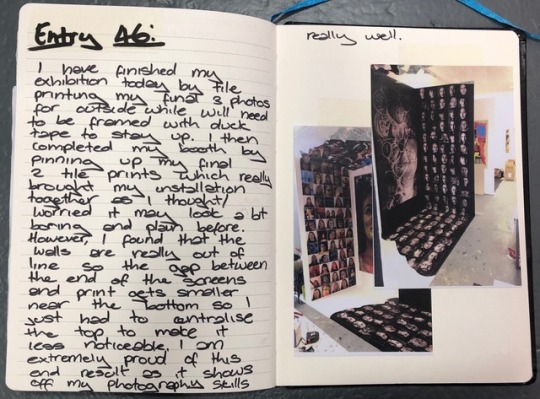 Entry 46:
I have finished my
exhibition today by tile
printing my final 3 photos
for outside while will need
to be framed with duck
tape to stay up. I then
completed my booth by
pinning up my final
2 tile prints which really
brought my installation
together as I thought/
worried it may look a bit
boring and plain before.
However, I found that the
walls are really out of
line so the gap between
the end of the screens
and print gets smaller
near the bottom so I
just had to centralise
the top to make it
less noticeable, I am
extremely proud of this
end result as it shows
off my photography skills
really well.